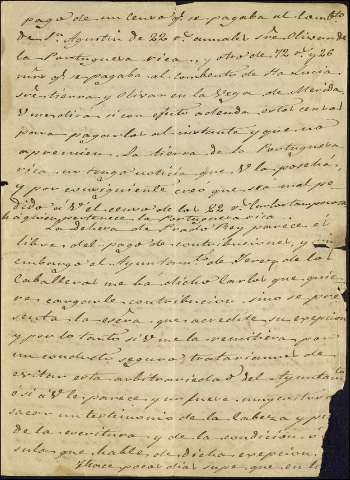 pago de un censo qe se pagaba al Combto
de Sn Agustin de 22 rs anuales sre Olivar de
la Portuguesa rica, y otro de 72 rs y 26
mrs qe se pagaba al combento de Sta Lucia
sre tierra y Olivar en la Vega de Merida
V. me dira si con efecto adeuda estos censos
para pagarlos al instante y que no
apremien. La tierra de la Portuguesa
rica no tengo noticia que V. la poseha,
y por consiguiente creo que sea mal pe
dido á V. el censo de los 22 rs
á quien pertenece la Portuguesa rica.
La dehesa de Prado Rey parece es
libre del pago de contribuciones, y sin
embargo el Ayuntamto de Jerez de los
Caballeros me há dicho Carlos que quie
re cargarle contribucion sino se pre
senta la escra que acredite su esepcion
y por lo tanto si V. me la remitiera por
un conducto seguro, tratariamos de
evitar esta arbitrariedad del Ayuntam
ó si á V. le parece y no fuere muy costoso
sacar un testimonio de la Cabeza y pie
de la escritura y de la condicion ó
sula que hable de dicha esepcion.
Hace pocos dias supe que en la